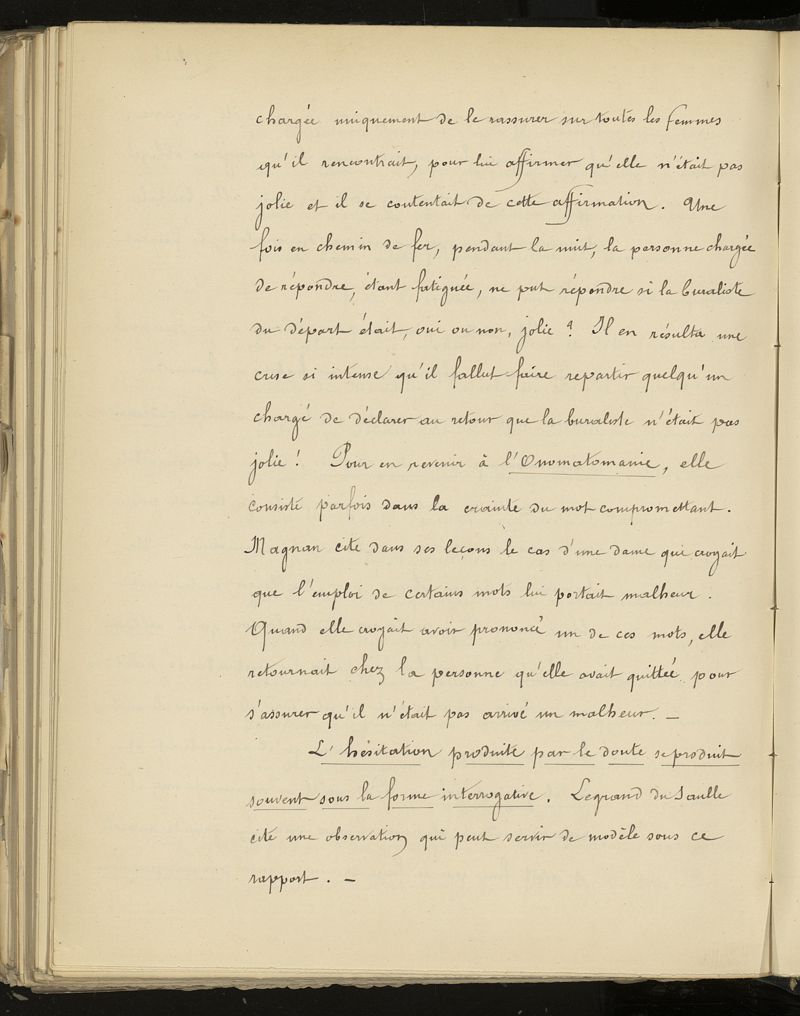 chargée uniquement de le rassurer sur toutes les femmes
qu'il rencontrait, pour lui affirmer qu'elle n'était pas
jolie et il se contentait de cette affirmation. Une
fois en chemin de fer, pendant la nuit, la personne chargée
de répondre, étant fatiguée, ne put répondre si la buraliste
du départ était, oui ou non, jolie ? Il en résulta une
crise si intense qu'il fallut faire repartir quelqu'un
chargé de déclarer au retour que la buraliste n'était pas
jolie ! Pour en revenir à l'Onomatomanie, elle
consiste parfois dans la crainte du mot compromettant.
Magnan cite dans ses leçons le cas d'une dame qui croyait
que l'emploi de certains mots lui portait malheur.
Quand elle croyait avoir prononcé un de ces mots, elle
retournait chez la personne qu'elle avait quittée pour
s'assurer qu'il n'était pas arrivé un malheur. —
L'hésitation produite par le doute se produit
souvent sous la forme interrogative. Legrand du Saulle
cite une observation qui peut servir de modèle sous ce
rapport. —